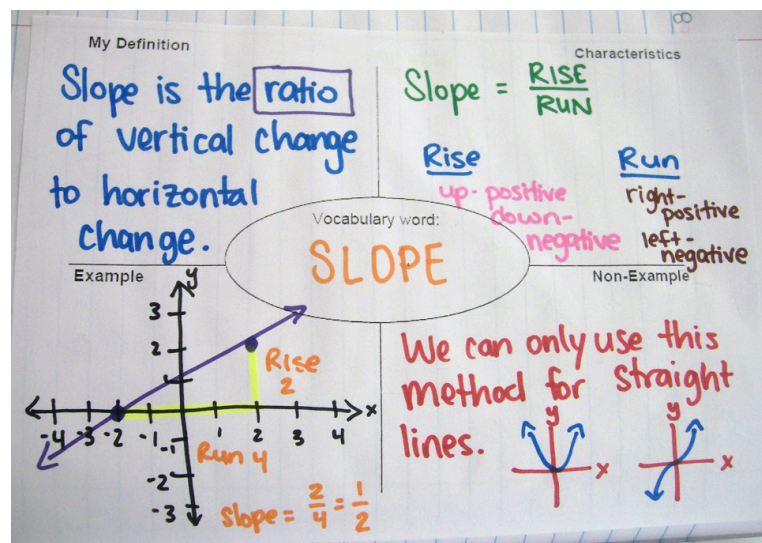 8
My Definition
Slope is the ratio
of vertical change
to horizontal
change.
Characteristics
Slope = RISE
RUN
Rise
up- positive
down-
negative
Run
right-
positive
left-
negative
Vocabulary word:
SLOPE
Example
y
3
2
1
-4 -3 -2 -1 1 2 3 4 x
-1
-2
-3
Rise
2
Run 4
Slope = 2/4 = 1/2
Non-Example
We can only use this
method for straight
lines.
y
x
y
x